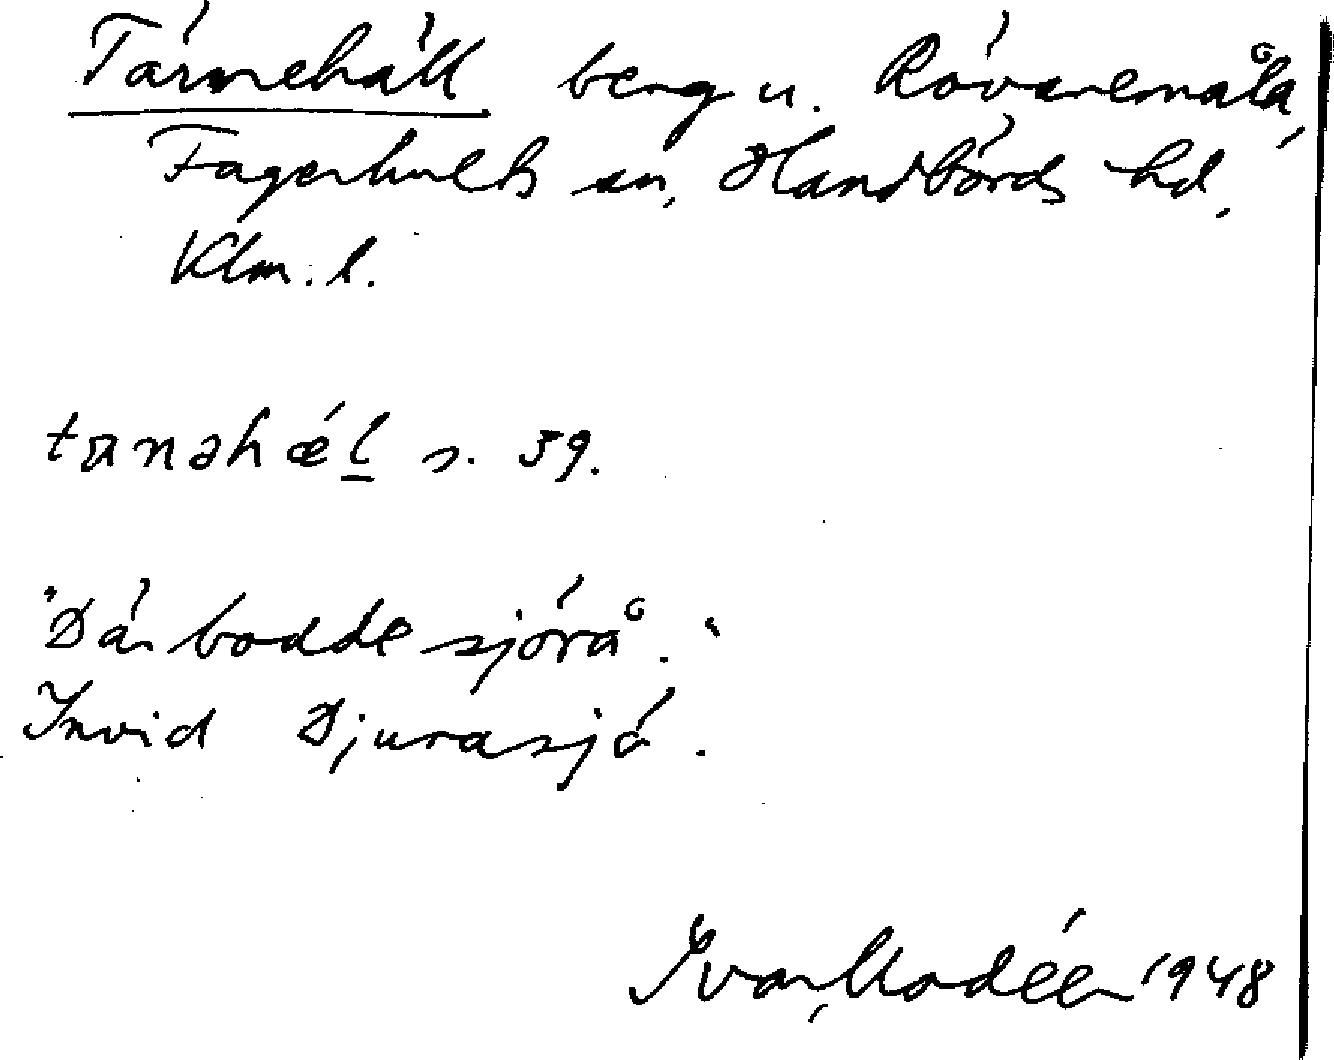 Tärnehäll berg u. Rövaremåla,
Fagerhults sn, Handbörds hd,
Klm. l.
tanəhǽl s. 39.
"Där bodde sjörå."
Invid Djurasjö.
Ivar Modéer 1948